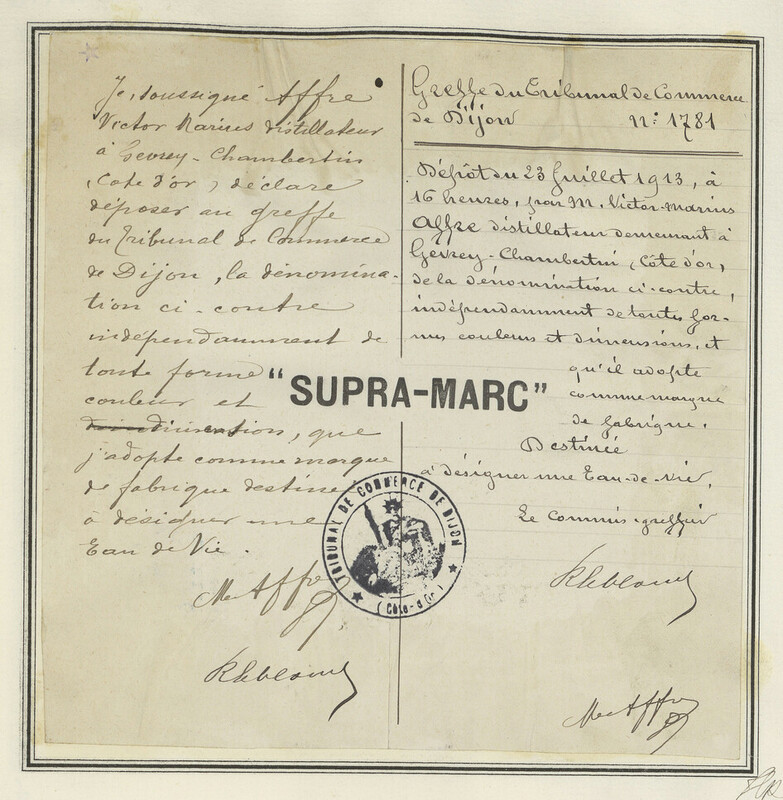 Je, soussigné Affre
Victor Marius distillateur
à Gevrey-Chambertin
(Côte d'or) déclare
déposer au greffe
du Tribunal de Commerce
de Dijon, la dénomina-
tion ci-contre
indépendamment de
toute forme
couleur et
dimension, que
j'adopte comme marque
de fabrique destinée
à désigner une
Eau de Vie.
M Affre
Greffe du Tribunal de Commerce
de Dijon n: 1781
Dépôt du 23 Juillet 1913, à
16 heures, par M. Victor-Marius
Affre distillateur demeurant à
Gevrey-Chambertin, Côte d'or,
de la dénomination ci-contre,
indépendamment de toutes for-
mes couleurs et dimensions, et
qu'il adopte
comme marque
de fabrique.
Destinée
à désigner une Eau-de-Vie.
Le Commis-greffier
M Affre
"SUPRA-MARC"
TRIBUNAL DE COMMERCE DE DIJON
(Côte-d'Or)